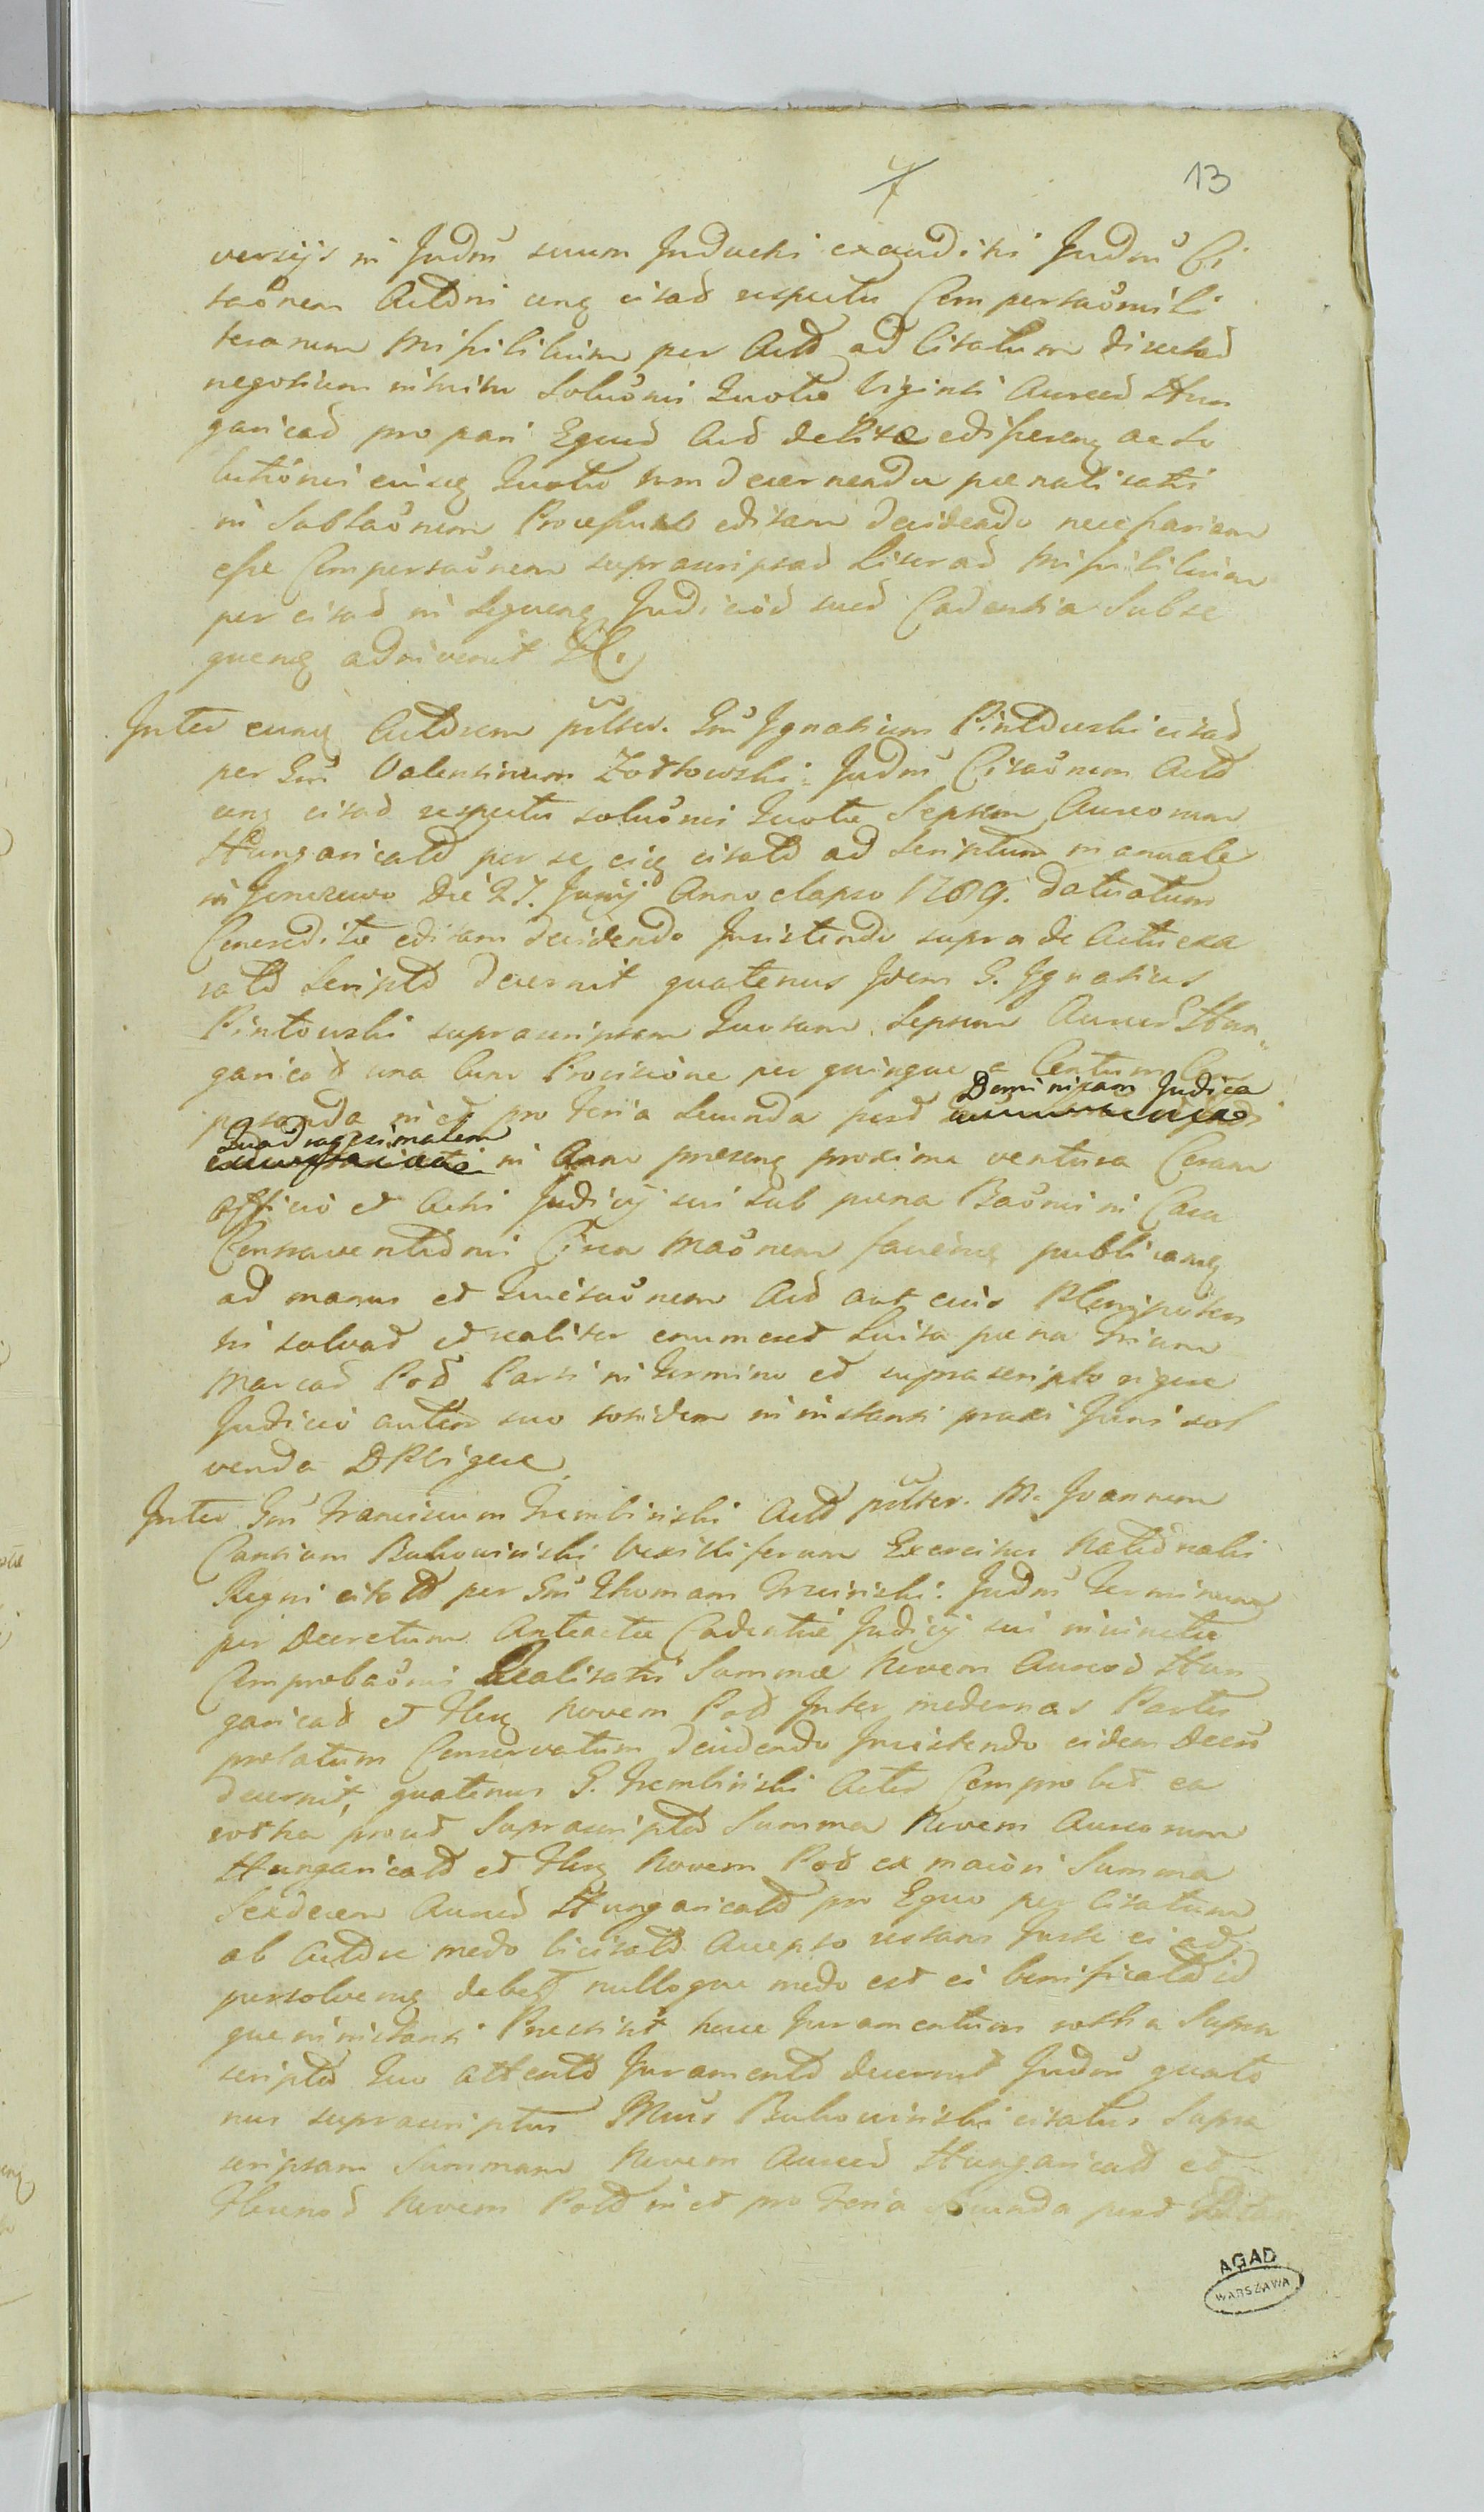 7 13
versijs in Judm̃ suum Inducti exauditi Judm̃ Ci
taõnem Actõri unq̨ citað respectu Compertaõnis li
terarum Missilium per Actð ad Citatum directað
negotium intuitu Soluõnis Quotæ Viginti Aureoð Hun
garicað pro pari Equoð Acð debitæ edisserenq̨ ac so
lutiõnis eiusq̨ Quotæ non decernendæ pænalitatis
in Sublaõnem Processus editam decidendo necessariam
esse Compertaõnem suprascriptað Literað Missilium
per citað in sequenq̨ Judicioð sueð Cadentia Subse
quenq̨ adinvenit &c.
Inter eunq̨ Actðrem põlter. Gm̃ Ignatium Pintowski citað
per Gm̃ Valentinum Zołtowski: Judm̃ Citaõnem Actð
unq̨ citað respectu soluõnis Quotæ Septem Aureorum
Hungaricatð per se eiq̨ citatð ad Scriptum manuale
in Jeruzewo Die 27. Junij Anno elapso 1789. datuatum
Creditæ editam decidendo Insistendo supra de Actu exa
ratð Scriptð decernit quatenus Idem G. Ignatius
Pintowski suprascriptam Quotam Septem Aureoð Hun
garicað una cum Provisione per quinque a Centum Com
putanda in et pro Feria Secunda post Dominicam Judica
Quadragesimalem in Anno præsenq̨ proxime ventura Coram
Officio et Actis Judicij sui sub pæna Baõnis in Casu
Contraventiõnis Circa Maõnem faciẽnq̨ publicanq̨
ad manus et Quietaõnem Acð aut eius Plenipoten
tis solvað et realiter enumereð Luita pæna trium
Marcað Poð Parti in Termino et supra scripto vigore
Judicio autem suo totidem in instanti praxi Juris sol
venda DPligere
Inter Gm̃ Franciscum Trembinski Actð põlter. M. Joannem
Cantium Bukowinski Vexilliferum Exercitus Natiõnalis
Regni citatð per Gm̃ Thomam : Judm̃ Terminum
per Decretum Anteactæ Cadentiæ Judicij sui in vinctu
Comprobaõnis Realitatis Summæ Novem Aureoð Hun
garicað et Flenq̨ Novem Poð Inter modernas Partes
prolatum Conservatum decidendo Insistendo eidem Decrõ
decernit, quatenus G. Trembinski Actor Comprobet ea
rotha prout Suprascriptð Summa Novem Aureorum
Hungaricatð et Flenq̨ Novem Poð ex maiori Summa
Sexdecem Aureoð Hungaricatð pro Equo per Citatum
ab Actðre modo licitatð Accepto restans Juste ei ad
persolvenq̨ debet nulloque modo est ei bonificatð id
que in instanti Præstitit hocce Juramentum rotha Supra
scriptð Quo attentð Juramentð decernit Judm̃ quate
nus suprascriptus Mũus Bukowinski citatus Supra
scriptam Summam Novem Aureoð Hungaricatð et
Florenoð Novem Polð in et pro Feria Secunda post
AGAD
WARSZAWA